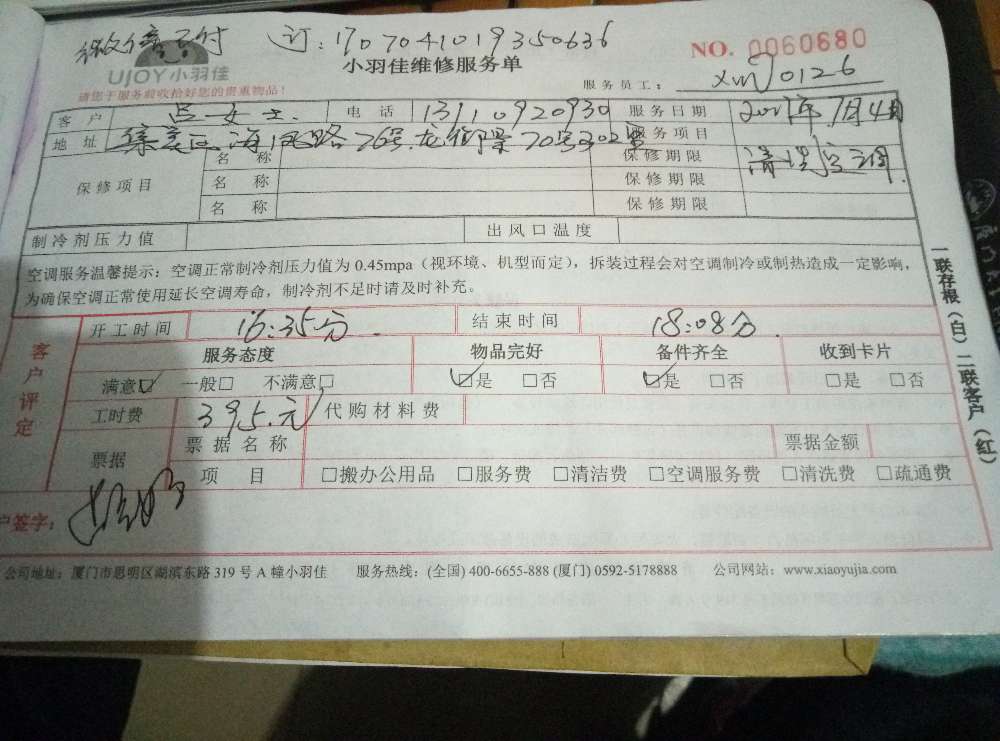 微信支付 订:1707041019350636 NO. 0060680
UJOY小羽佳 小羽佳维修服务单
请您于服务前收拾好您的贵重物品! 服务员工: 90126
客户 吕女士 电话 13110920930 服务日期 7月4日
地址 集美区海凤路76号 70号302室 服务项目 清洗空调
保修项目 名称 保修期限
名称 保修期限
名称 保修期限
制冷剂压力值 出风口温度
空调服务温馨提示:空调正常制冷剂压力值为0.45mpa(视环境、机型而定),拆装过程会对空调制冷或制热造成一定影响,
为确保空调正常使用延长空调寿命,制冷剂不足时请及时补充。
一联存根(白)二联客户(红)
客户评定
开工时间 16:35分 结束时间 18:08分
服务态度 物品完好 备件齐全 收到卡片
满意☑ 一般□ 不满意□ ☑是 □否 ☑是 □否 □是 □否
工时费 395.元 代购材料费
票据 票据名称 票据金额
项目 □搬办公用品 □服务费 □清洁费 □空调服务费 □清洗费 □疏通费
户签字:
公司地址:厦门市思明区湖滨东路 319 号 A 幢小羽佳 服务热线:(全国) 400-6655-888 (厦门) 0592-5178888 公司网站:www.xiaoyujia.com